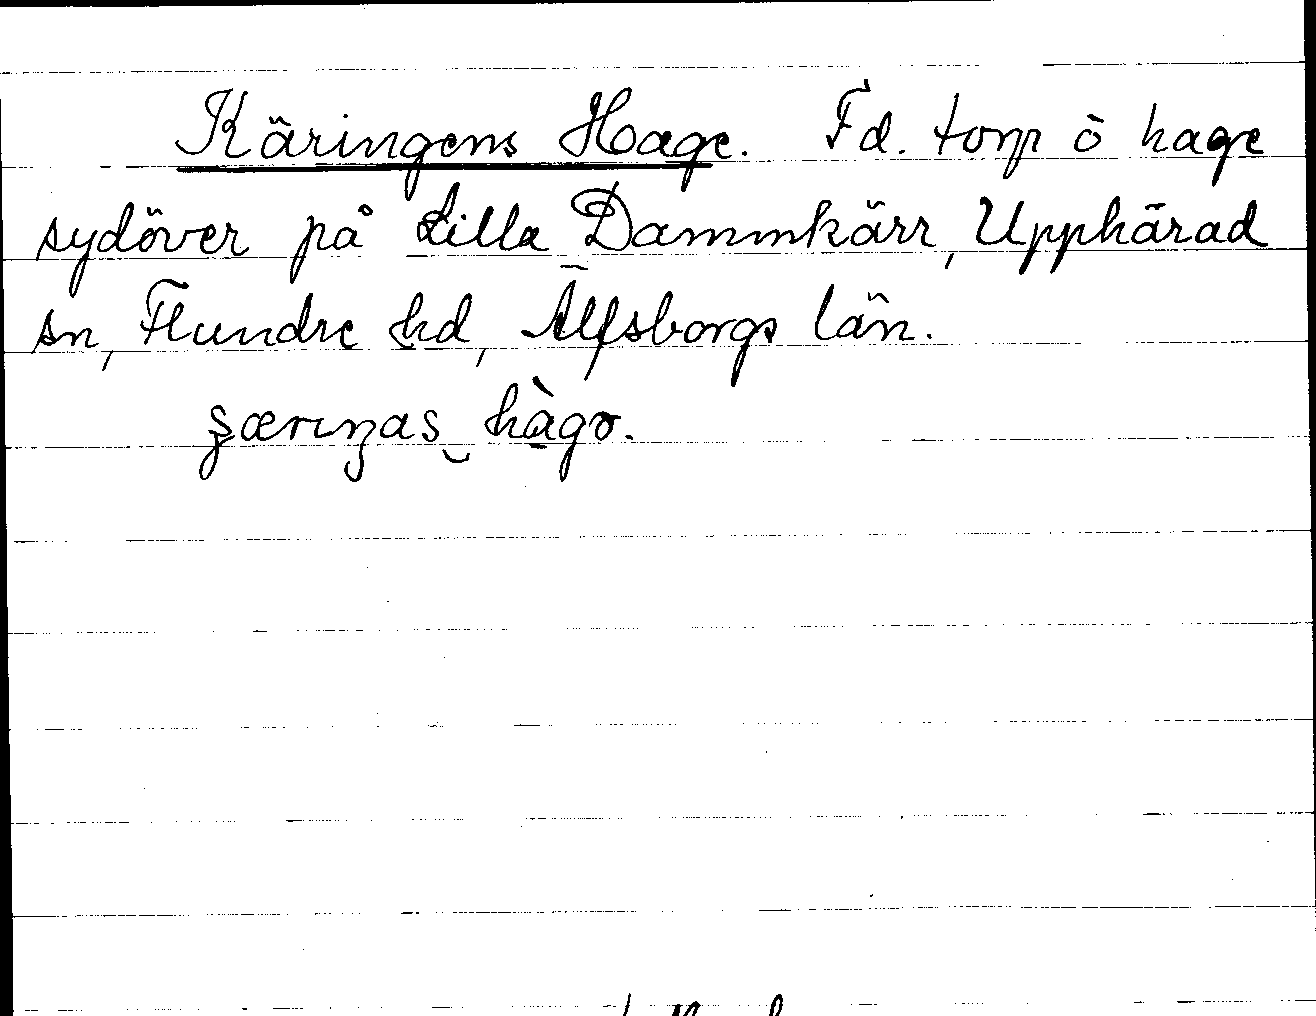 Käringens Hage. Fd. torp ö hage
sydöver på Lilla Dammkärr, Upphärad
sn, Flundre hd, Älfsborgs län.
hàgɤ.